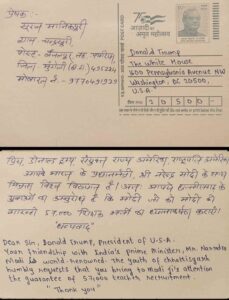 प्रेषक:
सूरज मानिकपुरी
ग्राम
पोस्ट-
जिला मुंगेली (छ.ग.) 495334
मोबाइल नं.-
POST CARD
75
आज़ादी का
अमृत महोत्सव
Donald Trump
The White House
600 Pennsylvania Avenue NW
Washington, DC 20500,
U.S.A
PIN 20500
प्रिय डोनाल्ड ट्रम्प संयुक्त राज्य अमेरिका, राष्ट्रपति
आपके भारत के प्रधानमंत्री श्री नरेन्द्र मोदी के साथ
मित्रता विश्व विख्यात है। अतः आपसे छत्तीसगढ़ के
युवाओं का अनुरोध है कि मोदी जी को मोदी की
गारंटी 57,000 शिक्षक भर्ती का ध्यानाकर्षण कराएं।
"धन्यवाद"
Dear Sir, Donald Trump, President of U.S.A.
Your friendship with India's prime Minister, Mr. Narendra
Modi is world-renowned. The youth of chhattisgarh
humbly requests that you bring to Modi ji's attention
the guarantee of 57,000 teacher recruitment.
"Thank you"